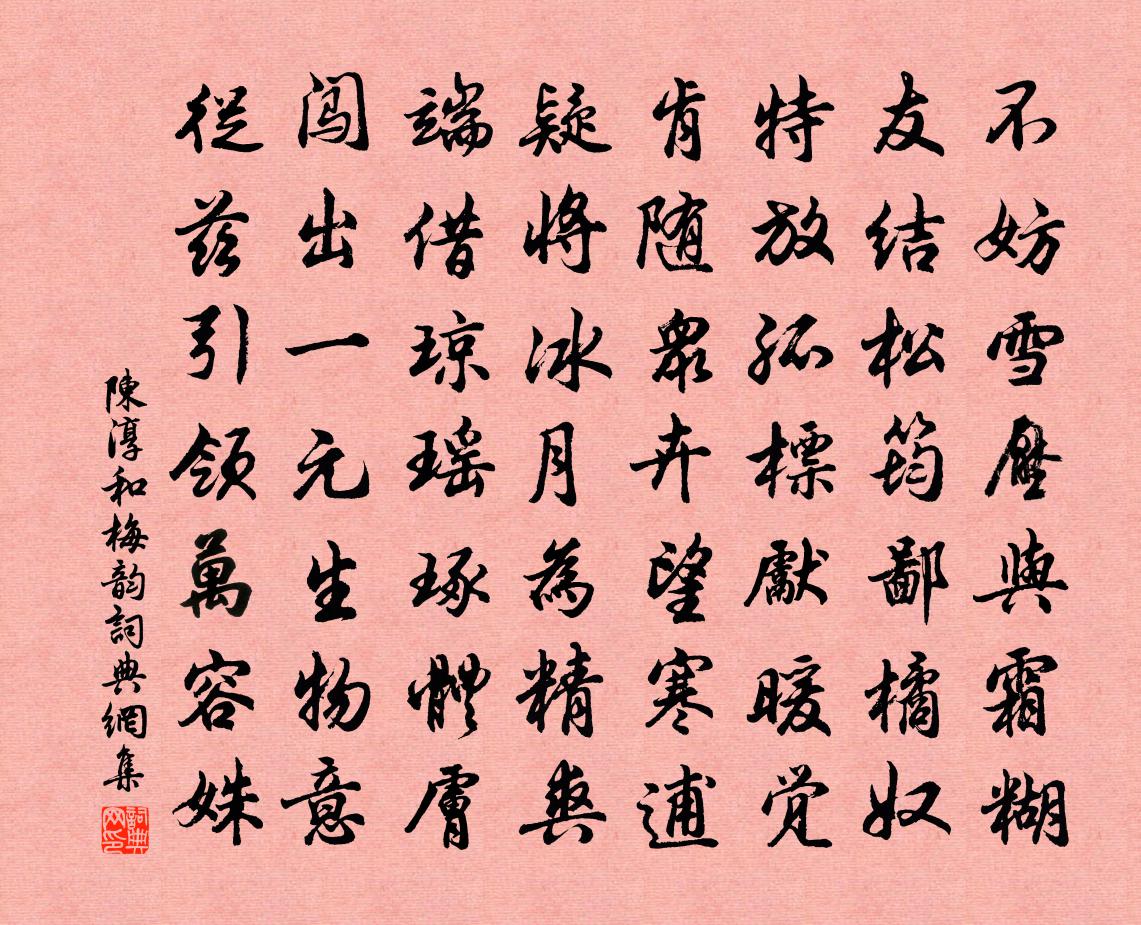 不妨雪壓與霜糊
友结松筠鄙橘奴
特放孤標獻暖觉
肯随眾卉望寒逋
疑将冰月為精爽
端借琼瑶琢體膚
闯出一元生物意
從兹引领萬容姝
陳淳和梅韵詞典網集
詞典网印